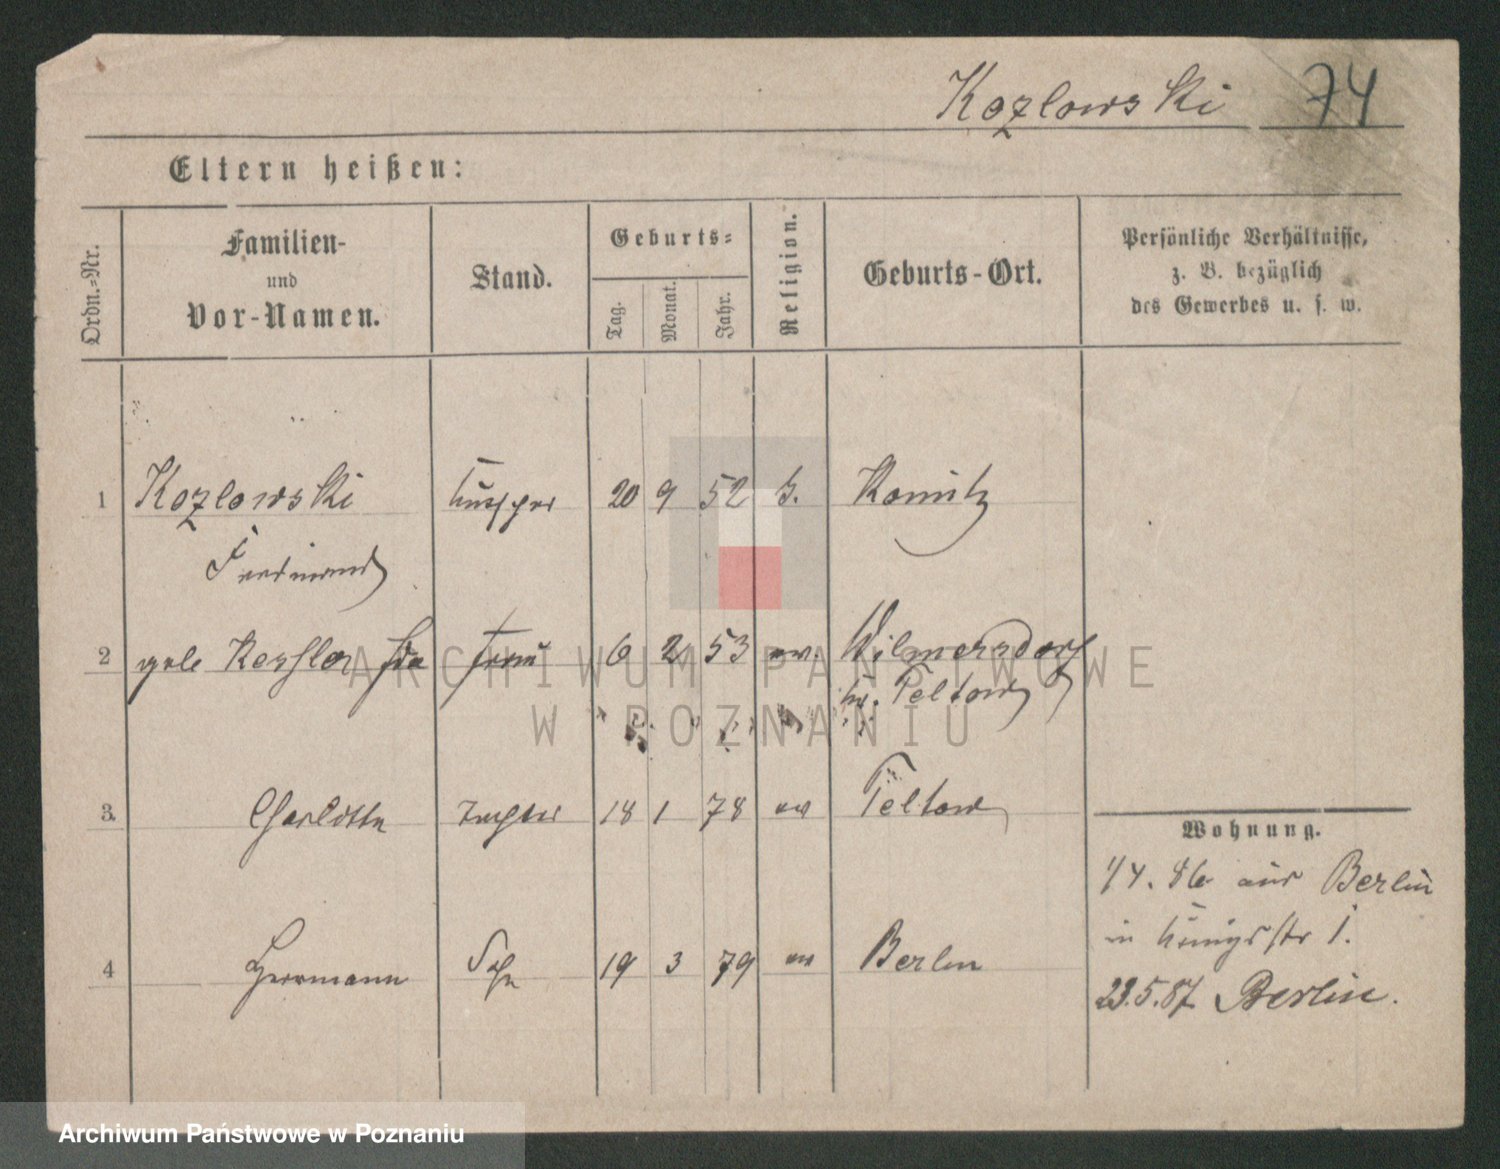 Kozlowski 74
Eltern heißen:
Ordn.=Nr.
Familien-
und
Vor-Namen.
Stand.
Geburts=
Tag.
Monat.
Jahr.
Religion.
Geburts-Ort.
Persönliche Verhältnisse,
z. B. bezüglich
des Gewerbes u. s. w.
1 Kozlowski 20 9 52 k. Konitz
Ferdinand
2 Kessler Ida Frau 6 2 53 ev. Wilmersdorf
Kr. Teltow
3. Charlotte Tochter 18 1 78 ev Teltow
4 Herrmann Sohn 19 3 79 ev Berlin
Wohnung.
1/4. 86 aus Berlin
in Königsstr 1.
23.5.87 Berlin.
ARCHIWUM PAŃSTWOWE
W POZNANIU
Archiwum Państwowe w Poznaniu